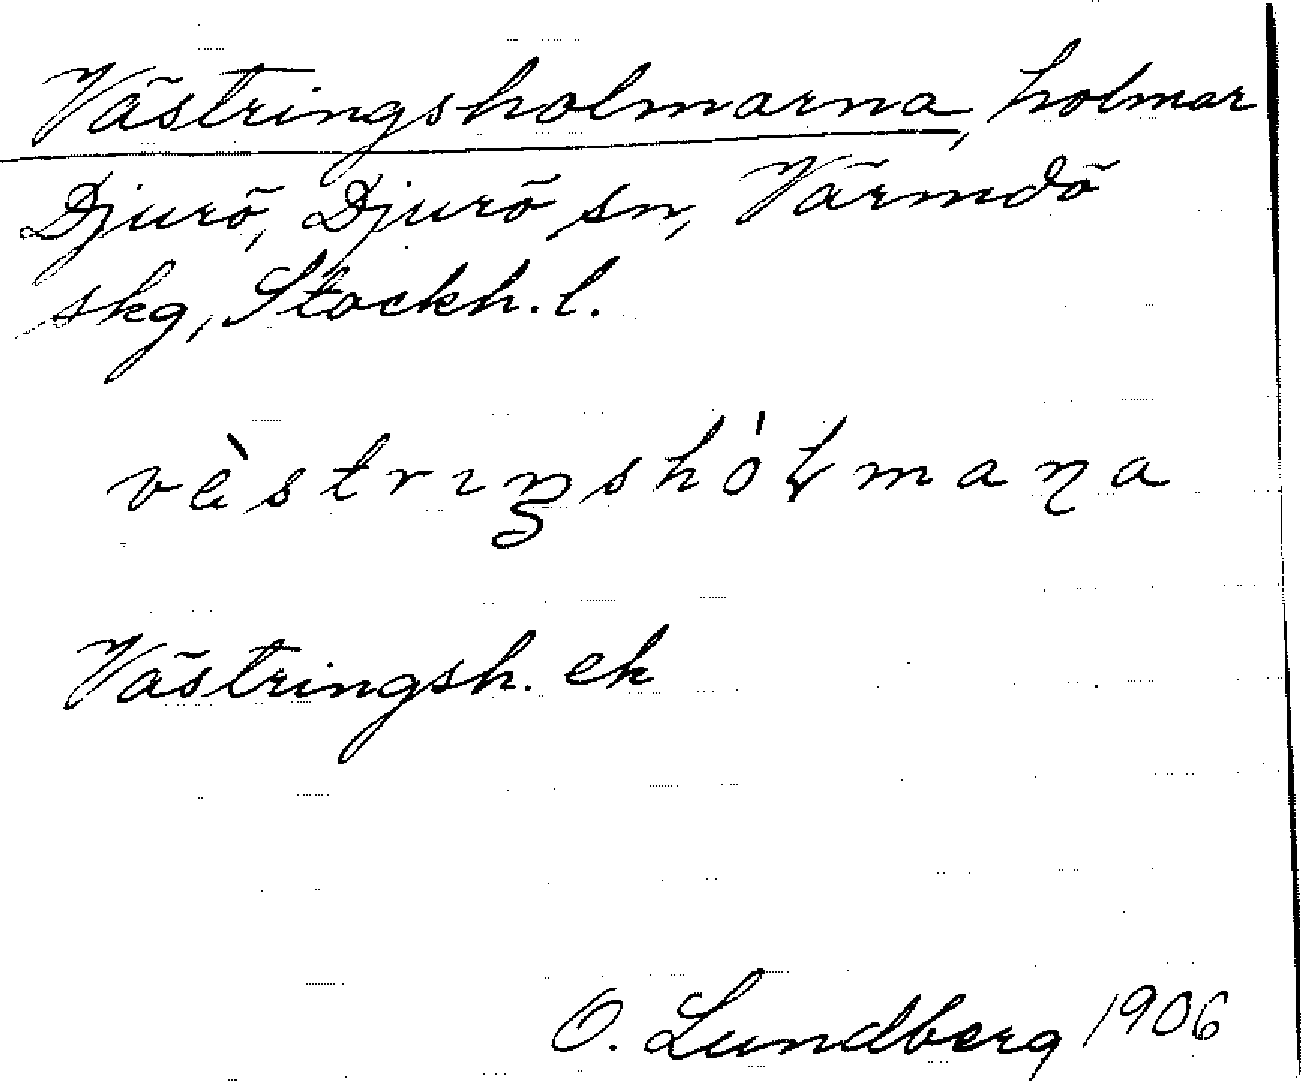 Västringsholmarna, holmar
Djurö, Djurö sn, Värmdö
skg, Stockh. l.
vè̀strıŋshóɫmaɳa
Västringsh. ek
O. Lundberg 1906